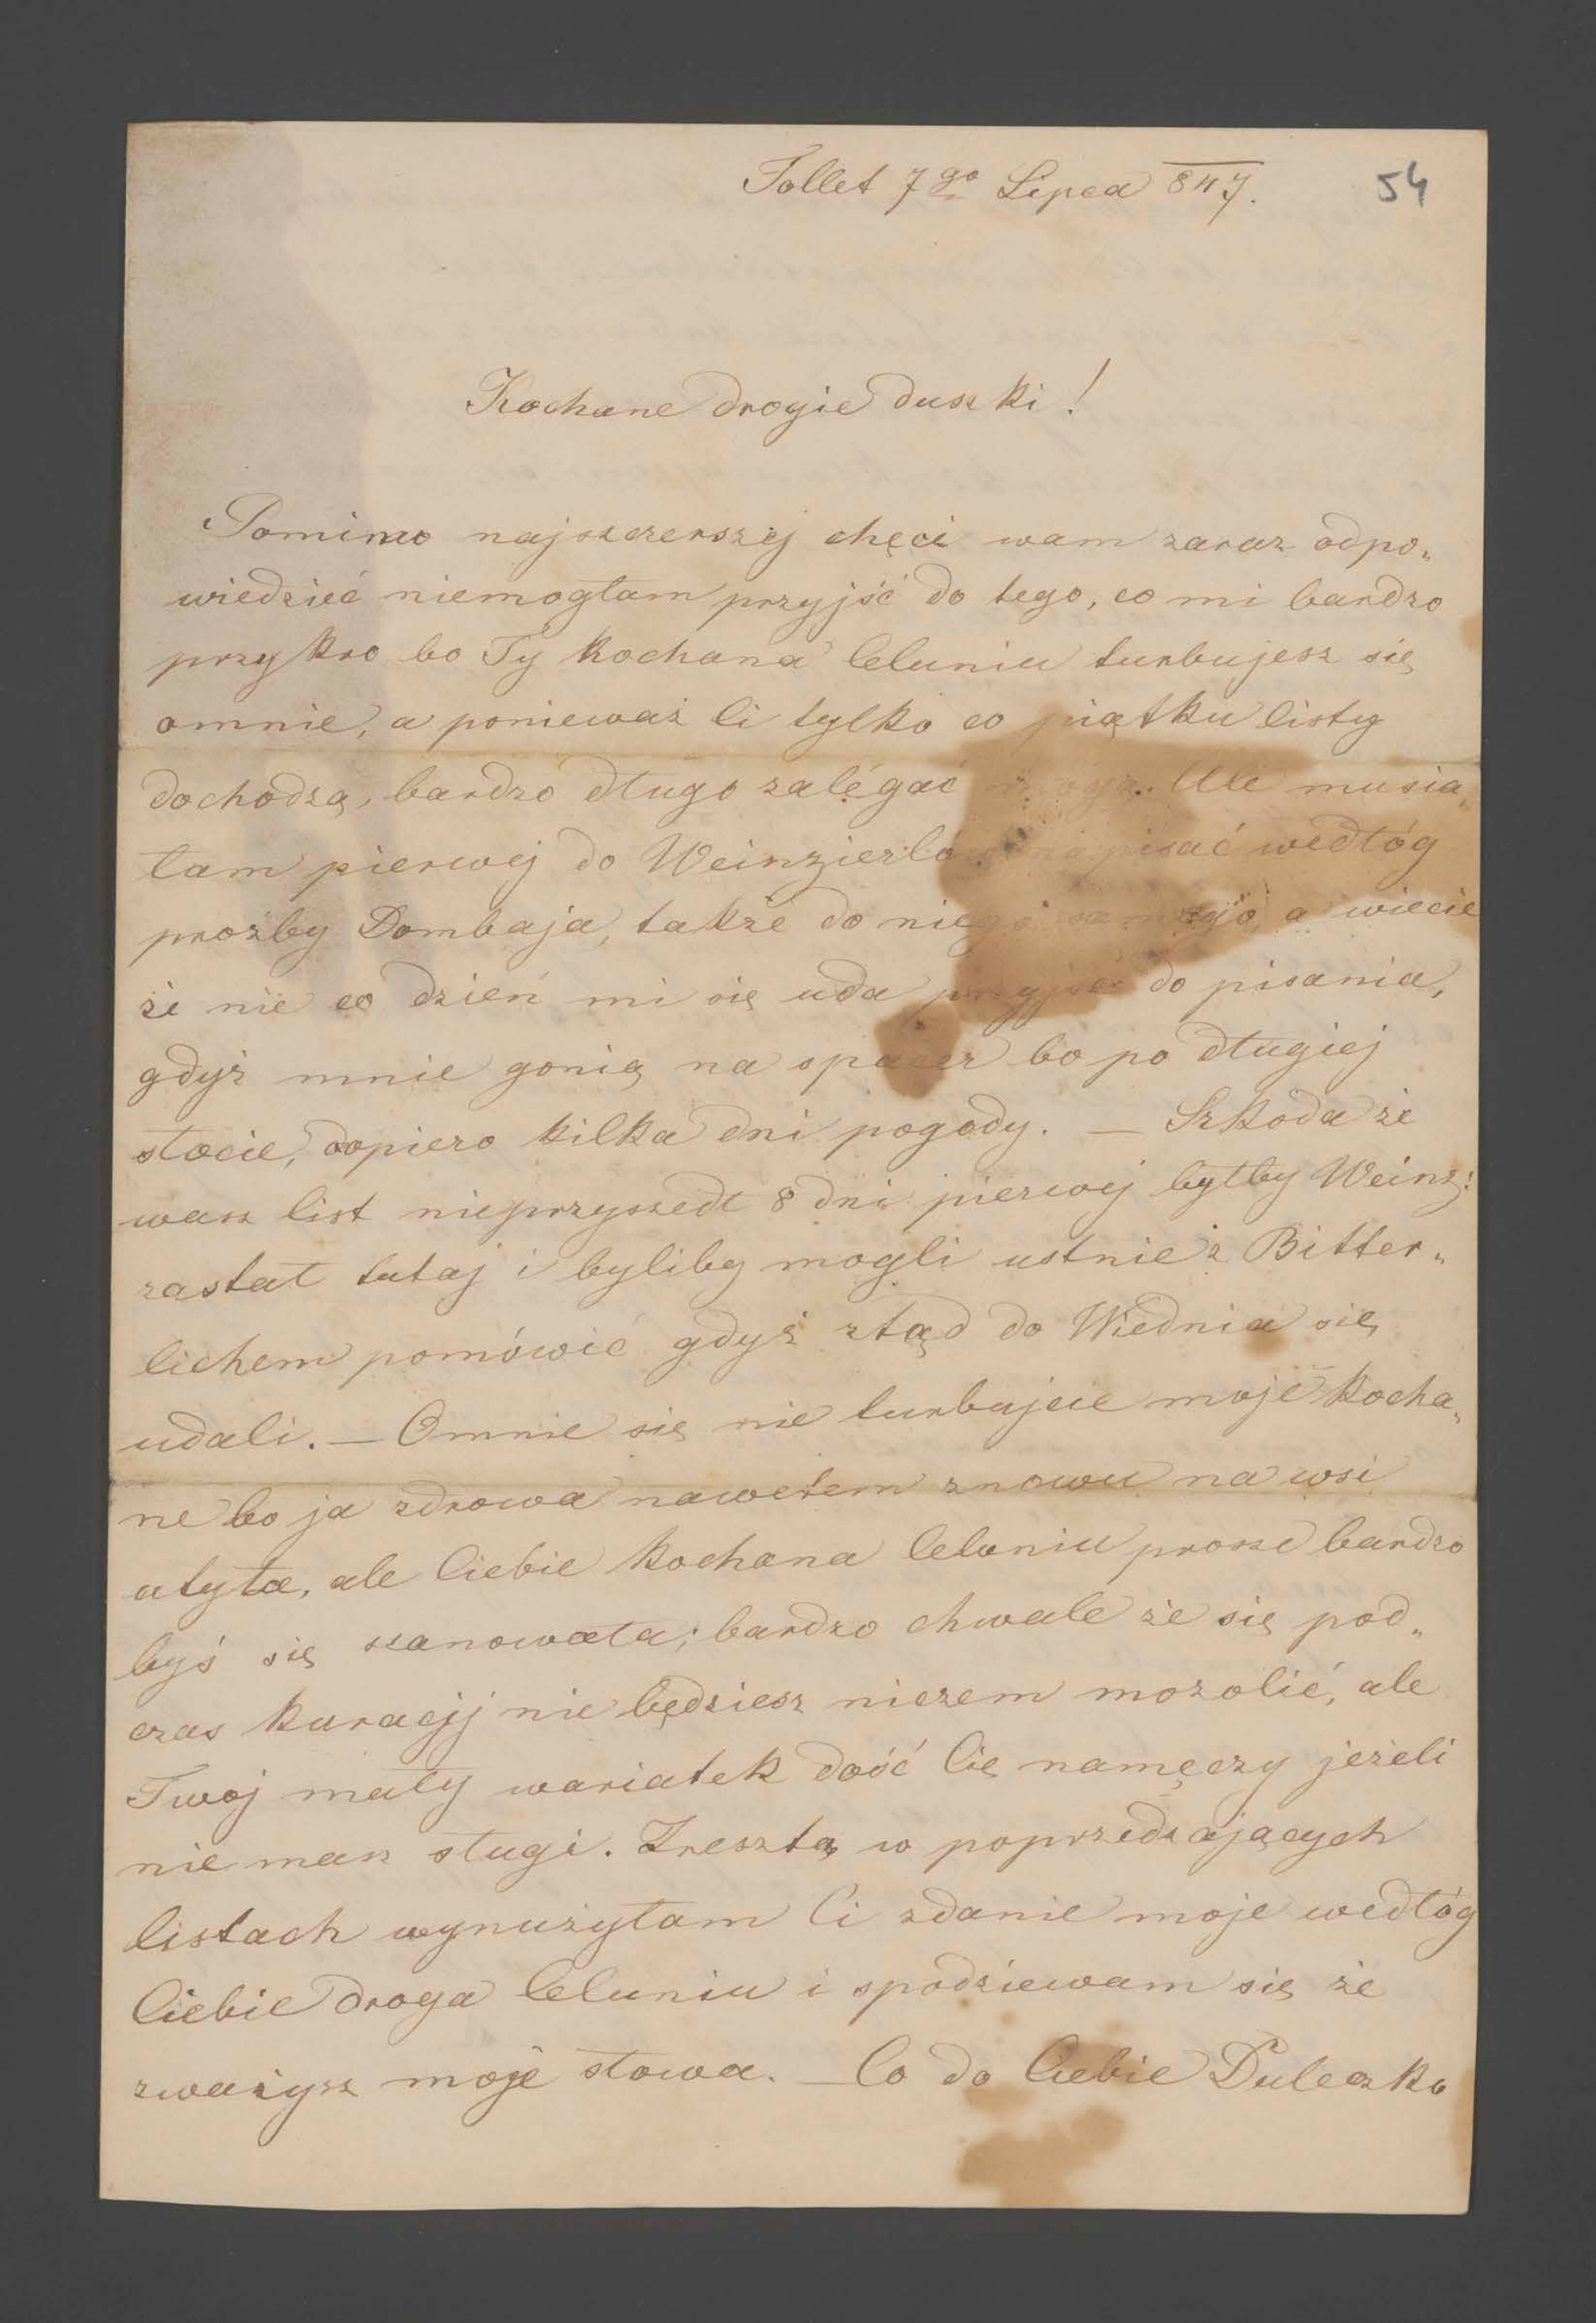 Tollet 7go Lipca 847.
54
Kochane drogie duszki!
Pomimo najszczerszej chęci wam zaraz odpo„
wiedzieć niemogłam przyjść do tego, co mi bardzo
przykro bo Ty kochana Celuniu turbujesz się
omnie, a ponieważ Ci tylko co piątku listy
dochodzą, bardzo długo zalégać mogą. Ale musia„
łam pierwej do Weinzierlów napisać wedłóg
prozby Dombaja, także do niego samego, a wiecie
że nie co dzień mi się uda przyjść do pisania,
gdyż mnie gonią na spacer bo po długiej
słocie, dopiero kilka dni pogody. — Szkoda że
wasz list nieprzyszedł 8 dni pierwej byłby Weinz:
zastał tutaj i byliby mogli ustnie z Bitter„
lichem pomówić gdyż ztąd do Wiednia się
udali. — Omnie się nie turbujcie moje kocha„
ne bo ja zdrowa nawetem znowu na wsi
utyła, ale Ciebie kochana Celuniu prosze bardzo
byś się szanowała; bardzo chwale że się pod„
czas kuracjj nie będziesz niczem mozolić, ale
Twoj mały wariatek dość Cię namęczy jeżeli
nie masz sługi. Zresztą w poprzedzających
listach wynużyłam Ci zdanie moje wedłóg
Ciebie droga Celuniu i spodziewam się że
zważysz moje słowa. — Co do Ciebie Duleczko